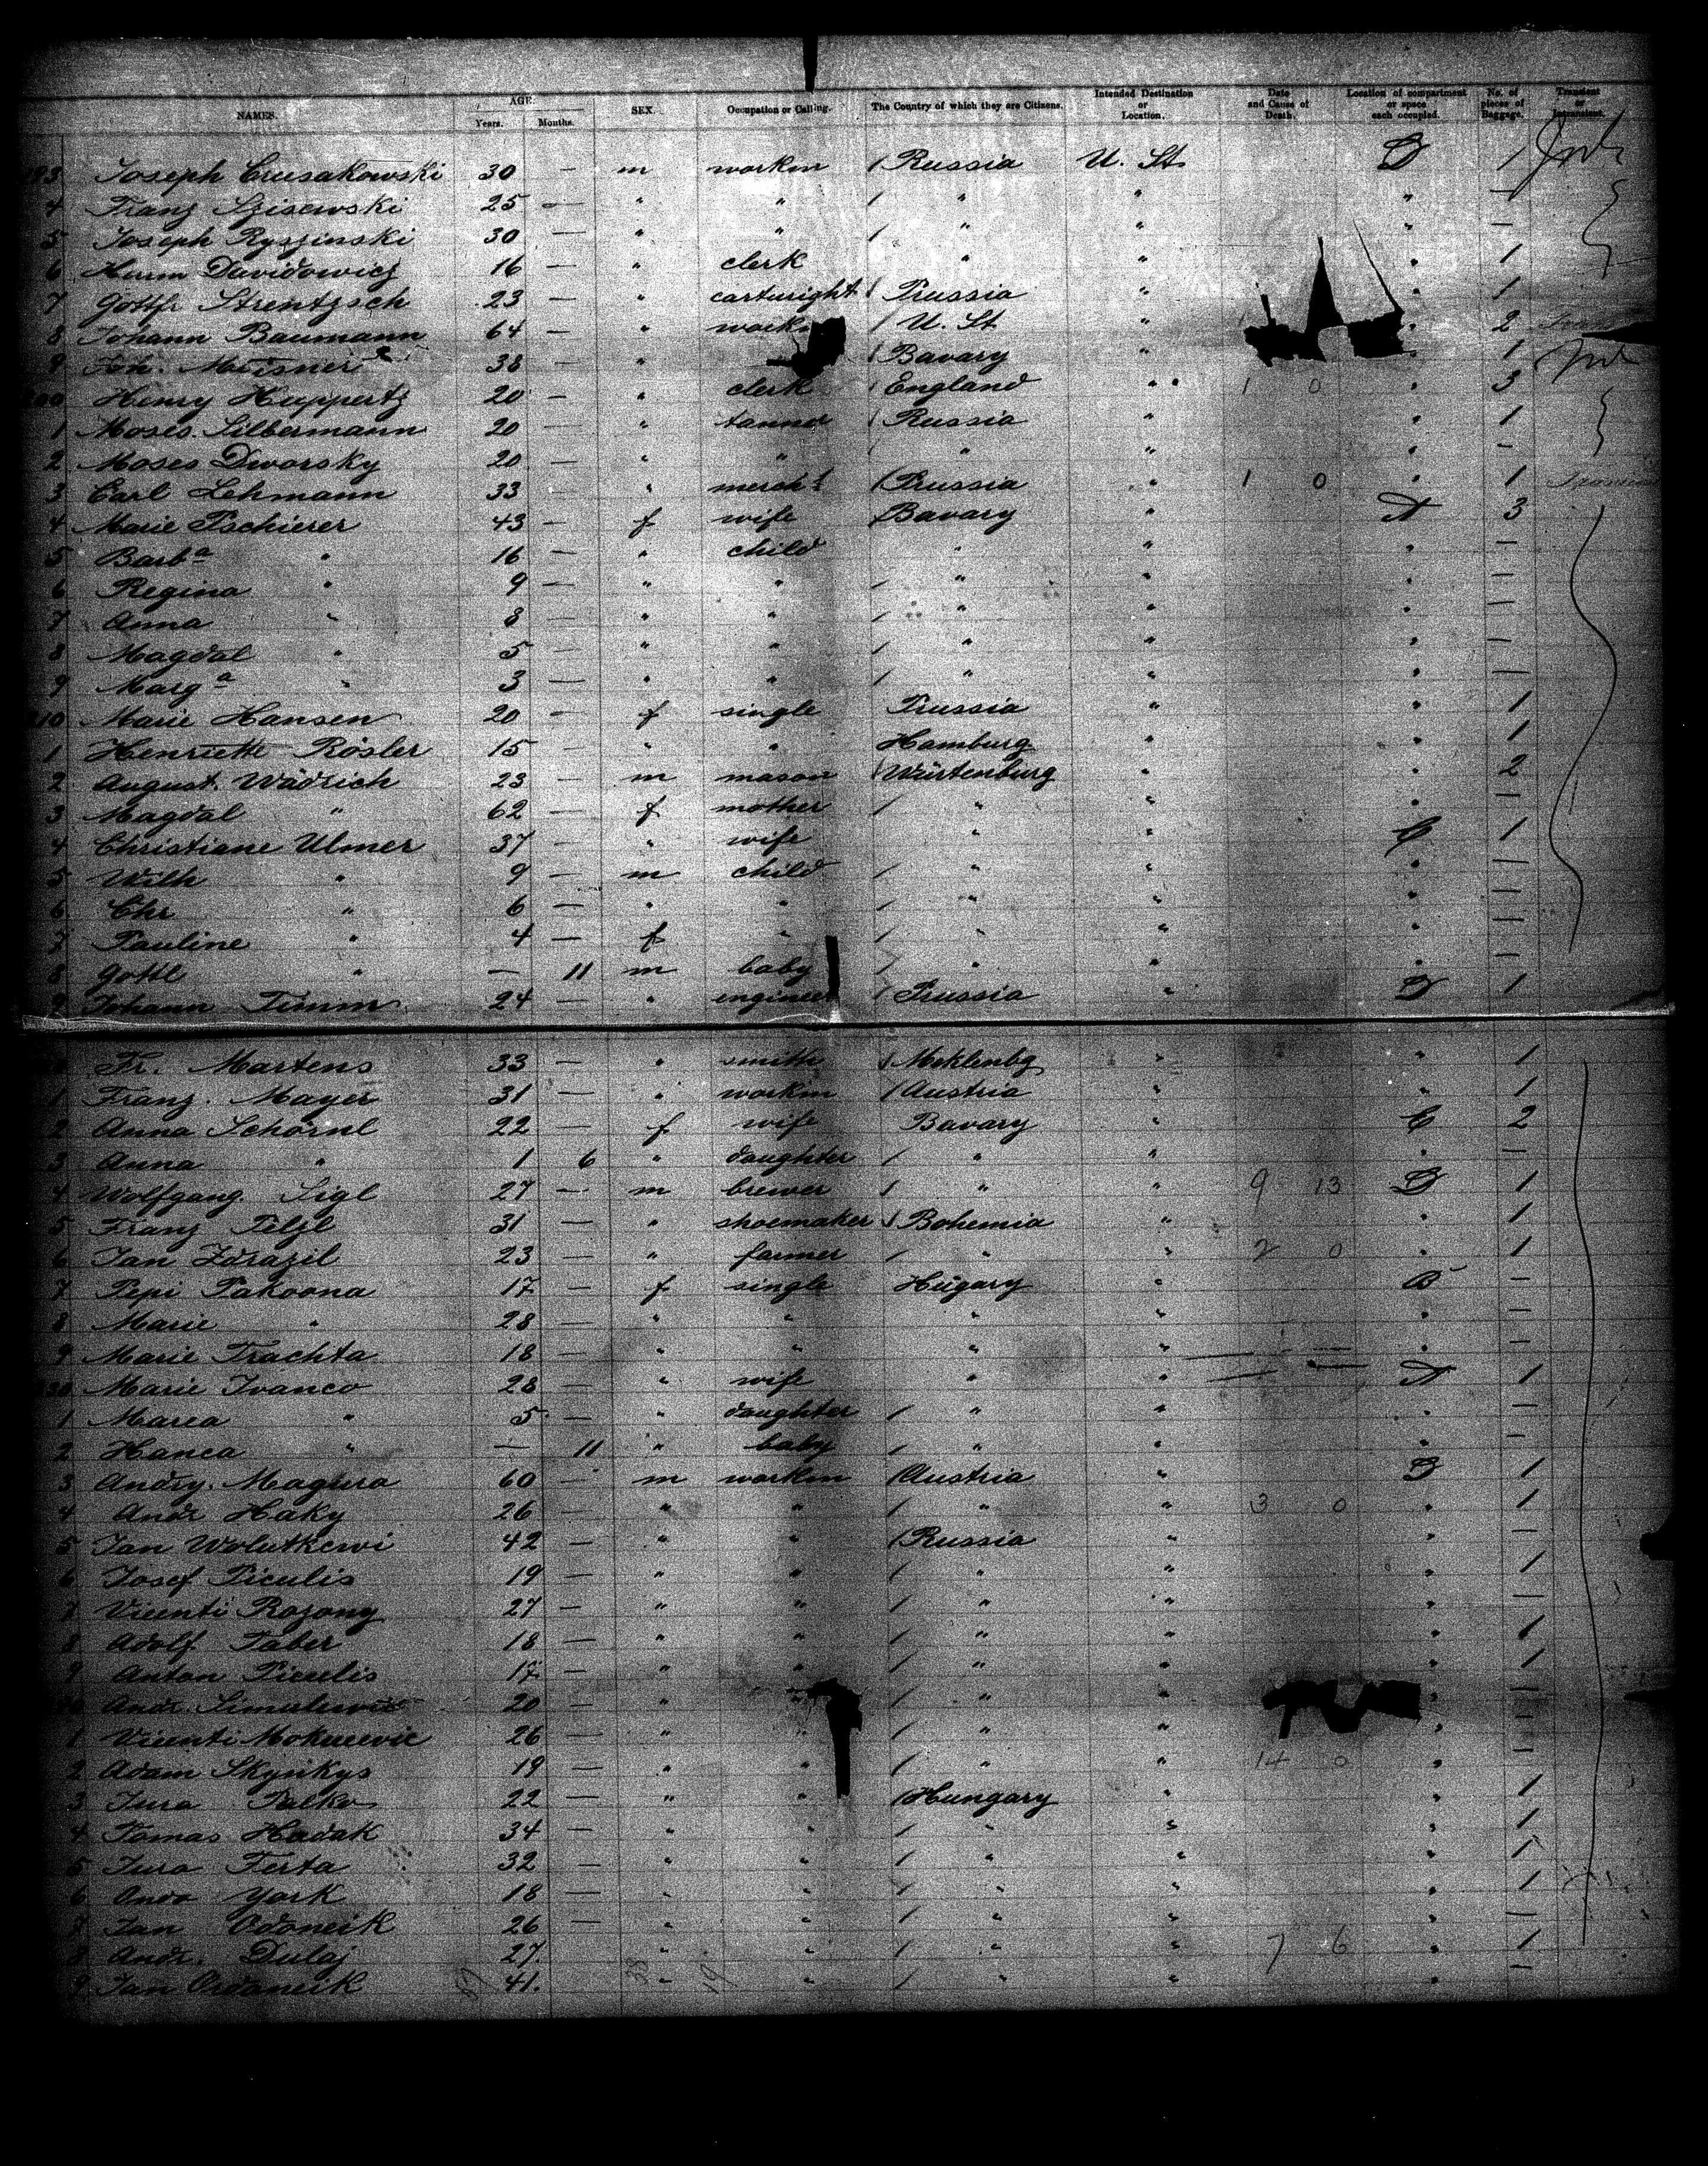 NAMES. AGE. Years. Months. SEX. Occupation or Calling. The Country of which they are Citizens. Intended Destination or Location. Date and Cause of Death. Location of compartment or space each occupied. No. of pieces of Baggage. Transient or Intransient.
Joseph Crusakowski 30 — m workm / Russia U. St. D 1
4 Franz Szisewski 25 — " " / " " " —
5 Joseph Ryszinski 30 — " " / " " " —
6 Herm Davidowicz 16 — " clerk " " " 1
7 Gottfr Strentzsch 23 — " cartwright / Prussia " 1
8 Johann Baumann 64 — " workm / U. St " " 2
9 Joh. Meisner 38 — " / Bavary " 1
200 Henry Huppertz 20 — " clerk / England " 1 0 " 3
1 Moses Silbermann 20 — " tanner / Russia " " 1
2 Moses Dworsky 20 — " " / " " " -
3 Carl Lehmann 33 " mercht / Prussia " 1 0 " 1 Transient
4 Marie Pschierer 43 — f wife / Bavary " A 3
5 Barba " 16 — " child " " " —
6 Regina " 9 — " " / " " " —
7 Anna " 8 — " " / " " " —
8 Magdal " 5 — " " / " " " —
9 Marga " 3 — " " / " " " —
210 Marie Hansen 20 — f single Prussia " " 1
1 Henriette Rösler 15 — " " Hamburg " " 1
2 August. Wädrich 23 — m mason / Würtenburg " " 2
3 Magdal " 62 — f mother / " " " —
4 Christiane Ulmer 37 — " wife " " C 1
5 Wilh " 9 — m child / " " " —
6 Chr " 6 — " " / " " " —
7 Pauline " 4 — f " / " " " —
8 Gottl " — 11 m baby / " " " —
9 Johann Timm 24 — " engineer / Prussia " D 1
Fr. Martens 33 — " smith / Meklenbg " " 1
1 Franz. Mayer 31 — " workm / Austria " " 1
2 Anna Schörnl 22 — f wife Bavary " C 2
3 Anna " 1 6 " daughter / " " " —
4 Wolfgang Sigl 27 — m brewer / " " 9 13 D 1
5 Franz Pelzl 31 — " shoemaker / Bohemia " " 1
6 Jan Zdrazil 23 — " farmer / " " 2 0 " 1
7 Pepi Pakoona 17 — f single Hugary " B —
8 Marie " 28 — " " " " " —
9 Marie Trachta 18 — " " " " " —
230 Marie Ivanco 28 — " wife " " A 1
1 Marea " 5 — " daughter / " " " —
2 Hanca " — 11 " baby / " " " —
3 Andry. Magura 60 — m workm / Austria " D 1
4 Andr Haky 26 — " " / " " 3 0 " 1
5 Jan Wolutkewi 42 — " " / Russia " " —
6 Josef Piculis 19 — " " / " " " 1
7 Vicenti Rozony 27 — " " / " " " —
8 Adolf Taber 18 — " " / " " " 1
9 Anton Piculis 17 — " " / " " " 1
Andr. 20 — " " / " " " —
1 Vicenti 26 — " " / " " " —
2 Adam Skynkys 19 — " " / " " 14 0 " —
3 Jura Palko 22 — " " / Hungary " " 1
4 Tomas Hadak 34 — " " / " " " 1
5 Jura Ferta 32 — " " / " " " 1
6 Ondr York 18 — " " / " " " 1
7 Jan 26 — " " / " " " —
8 Andr. Dulaj 27. " " / " " 7 6 " 1
9 Jan 41. " " / " " " —